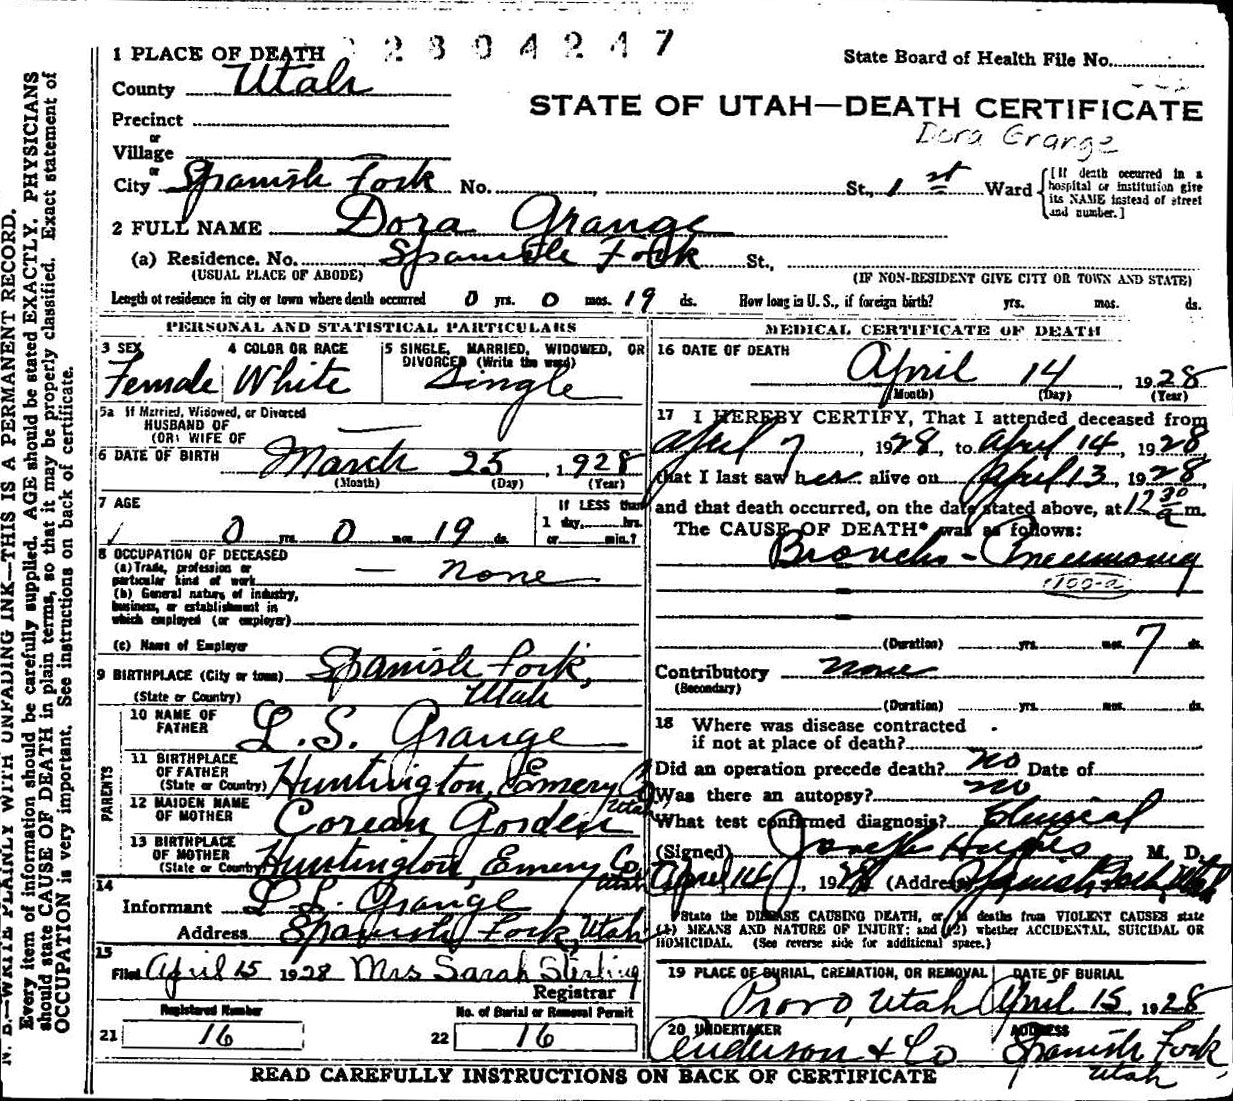 2 8 0 4 2 4 7
1 PLACE OF DEATH
State Board of Health File No.
County Utah
STATE OF UTAH—DEATH CERTIFICATE
Dora Grange
Precinct
or
Village
or
City Spanish Fork No. St., 1st Ward
[If death occurred in a hospital or institution give its NAME instead of street and number.]
2 FULL NAME Dora Grange
(a) Residence. No. Spanish Fork St.,
(USUAL PLACE OF ABODE) (IF NON-RESIDENT GIVE CITY OR TOWN AND STATE)
Length of residence in city or town where death occurred 0 yrs. 0 mos. 19 ds. How long in U. S., if foreign birth? yrs. mos. ds.
PERSONAL AND STATISTICAL PARTICULARS
3 SEX Female
4 COLOR OR RACE White
5 SINGLE, MARRIED, WIDOWED, OR DIVORCED (Write the word) Single
5a If Married, Widowed, or Divorced
HUSBAND OF
(OR) WIFE OF —
6 DATE OF BIRTH March 25, 1928
(Month) (Day) (Year)
7 AGE
0 yrs. 0 mos. 19 ds.
If LESS than 1 day, hrs. or min.?
8 OCCUPATION OF DECEASED
(a) Trade, profession or particular kind of work — none
(b) General nature of industry, business, or establishment in which employed (or employer)
(c) Name of Employer
9 BIRTHPLACE (City or town) Spanish Fork,
(State or Country) Utah
PARENTS
10 NAME OF FATHER L. S. Grange
11 BIRTHPLACE OF FATHER (State or Country) Huntington, Emery Co Utah
12 MAIDEN NAME OF MOTHER Corean Gorden
13 BIRTHPLACE OF MOTHER (State or Country) Huntington, Emery Co. Utah
14
Informant L. S. Grange
Address Spanish Fork, Utah
15
Filed April 15 1928 Mrs Sarah Sterling
Registrar
Registered Number
21 16
No. of Burial or Removal Permit
22 16
MEDICAL CERTIFICATE OF DEATH
16 DATE OF DEATH
April 14, 1928
(Month) (Day) (Year)
17 I HEREBY CERTIFY, That I attended deceased from
April 7, 1928, to April 14, 1928,
that I last saw her alive on April 13, 1928,
and that death occurred, on the date stated above, at 12 30 a m.
The CAUSE OF DEATH* was as follows:
Broncho-Pneumonia
100-a
(Duration) yrs. mos. 7 ds.
Contributory none
(Secondary)
(Duration) yrs. mos. ds.
18 Where was disease contracted
if not at place of death?
Did an operation precede death? no Date of
Was there an autopsy? no
What test confirmed diagnosis? Clinical
(Signed) Joseph Hughes M. D.
April 14, 1928 (Address) Spanish Fork, Utah
*State the DISEASE CAUSING DEATH, or in deaths from VIOLENT CAUSES state
(1) MEANS AND NATURE OF INJURY; and (2) whether ACCIDENTAL, SUICIDAL OR
HOMICIDAL. (See reverse side for additional space.)
19 PLACE OF BURIAL, CREMATION, OR REMOVAL Provo, Utah
DATE OF BURIAL April 15, 1928
20 UNDERTAKER Anderson & Co
ADDRESS Spanish Fork Utah
READ CAREFULLY INSTRUCTIONS ON BACK OF CERTIFICATE
N. B.—WRITE PLAINLY WITH UNFADING INK—THIS IS A PERMANENT RECORD.
Every item of information should be carefully supplied. AGE should be stated EXACTLY. PHYSICIANS
should state CAUSE OF DEATH in plain terms, so that it may be properly classified. Exact statement of
OCCUPATION is very important. See instructions on back of certificate.